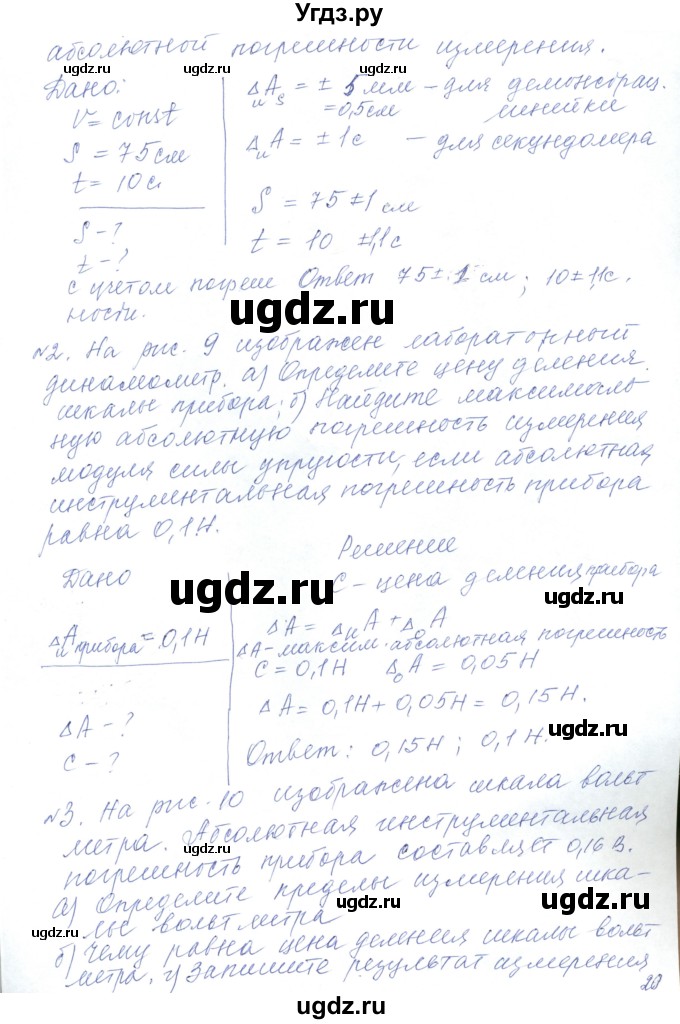 Угдз.ру
абсолютной погрешности измерения.
Дано:
V = const
S = 75 см
t = 10 с.
S - ?
t - ?
с учётом погреш
ности.
ΔиAs = ± 5 мм – для демонстрац.
= 0,5 см линейки
ΔиA = ± 1 с – для секундомера
S = 75 ± 1 см
t = 10 ± 1,1 с
Ответ 75 ± 1 см; 10 ± 1,1 с.
ugdz.ru
№2. На рис. 9 изображен лабораторный
динамометр. а) Определите цену деления
шкалы прибора; б) Найдите максималь
ную абсолютную погрешность измерения
модуля силы упругости, если абсолютная
инструментальная погрешность прибора
равна 0,1 Н.
Решение
Дано
ΔиA прибора = 0,1 Н
ΔA - ?
C - ?
C – цена деления прибора
ΔA = ΔиA + ΔоA
ΔA – максим. абсолютная погрешность
C = 0,1 Н ΔоA = 0,05 Н
ΔA = 0,1 Н + 0,05 Н = 0,15 Н.
Ответ: 0,15 Н; 0,1 Н.
№3. На рис. 10 изображена шкала вольт
метра. Абсолютная инструментальная
погрешность прибора составляет 0,16 В.
а) Определите пределы измерения шка-
лы вольтметра
б) Чему равна цена деления шкалы вольт
метра. г) Запишите результат измерения
20
ugdz.ru